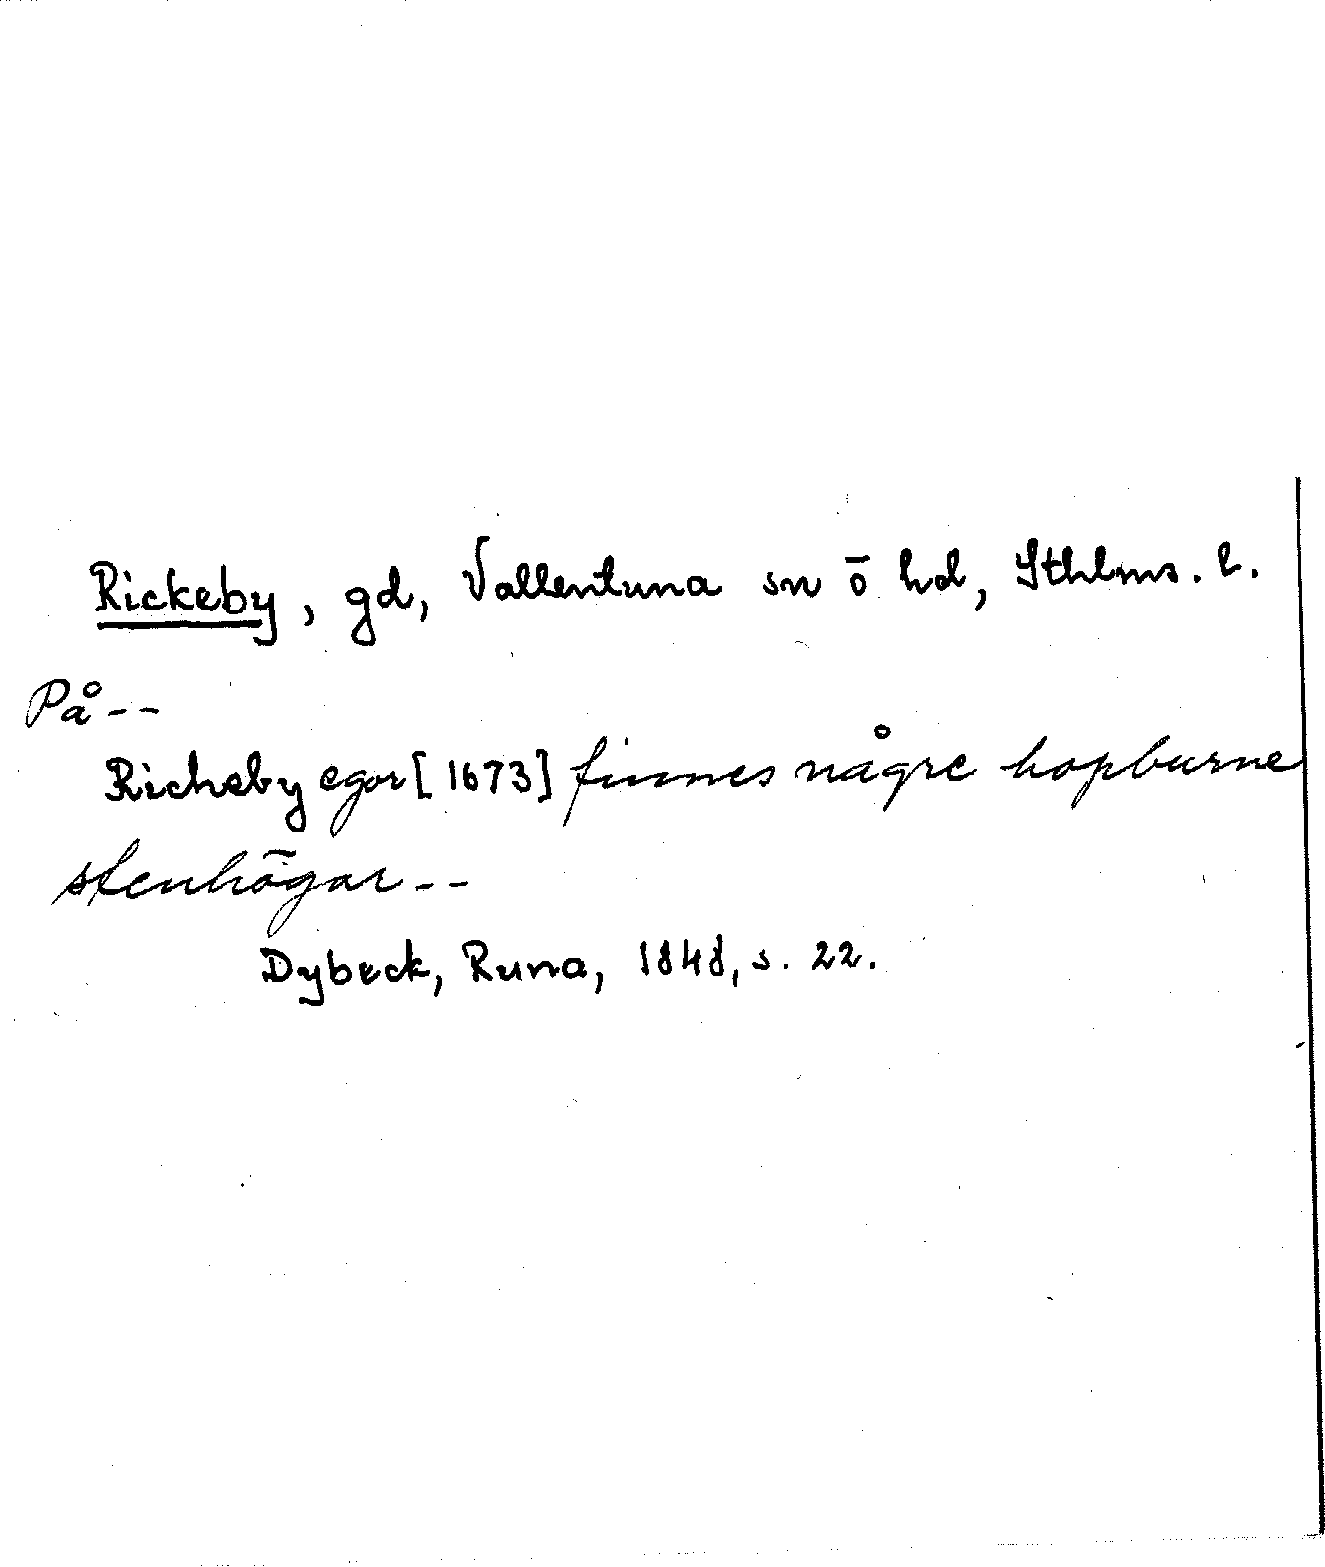 Rickeby, gd, Vallentuna sn o hd, Sthlms. l.
På--
Richeby egor [1673] finnes någre hopburne
stenhögar--
Dybeck, Runa, 1848, s. 22.